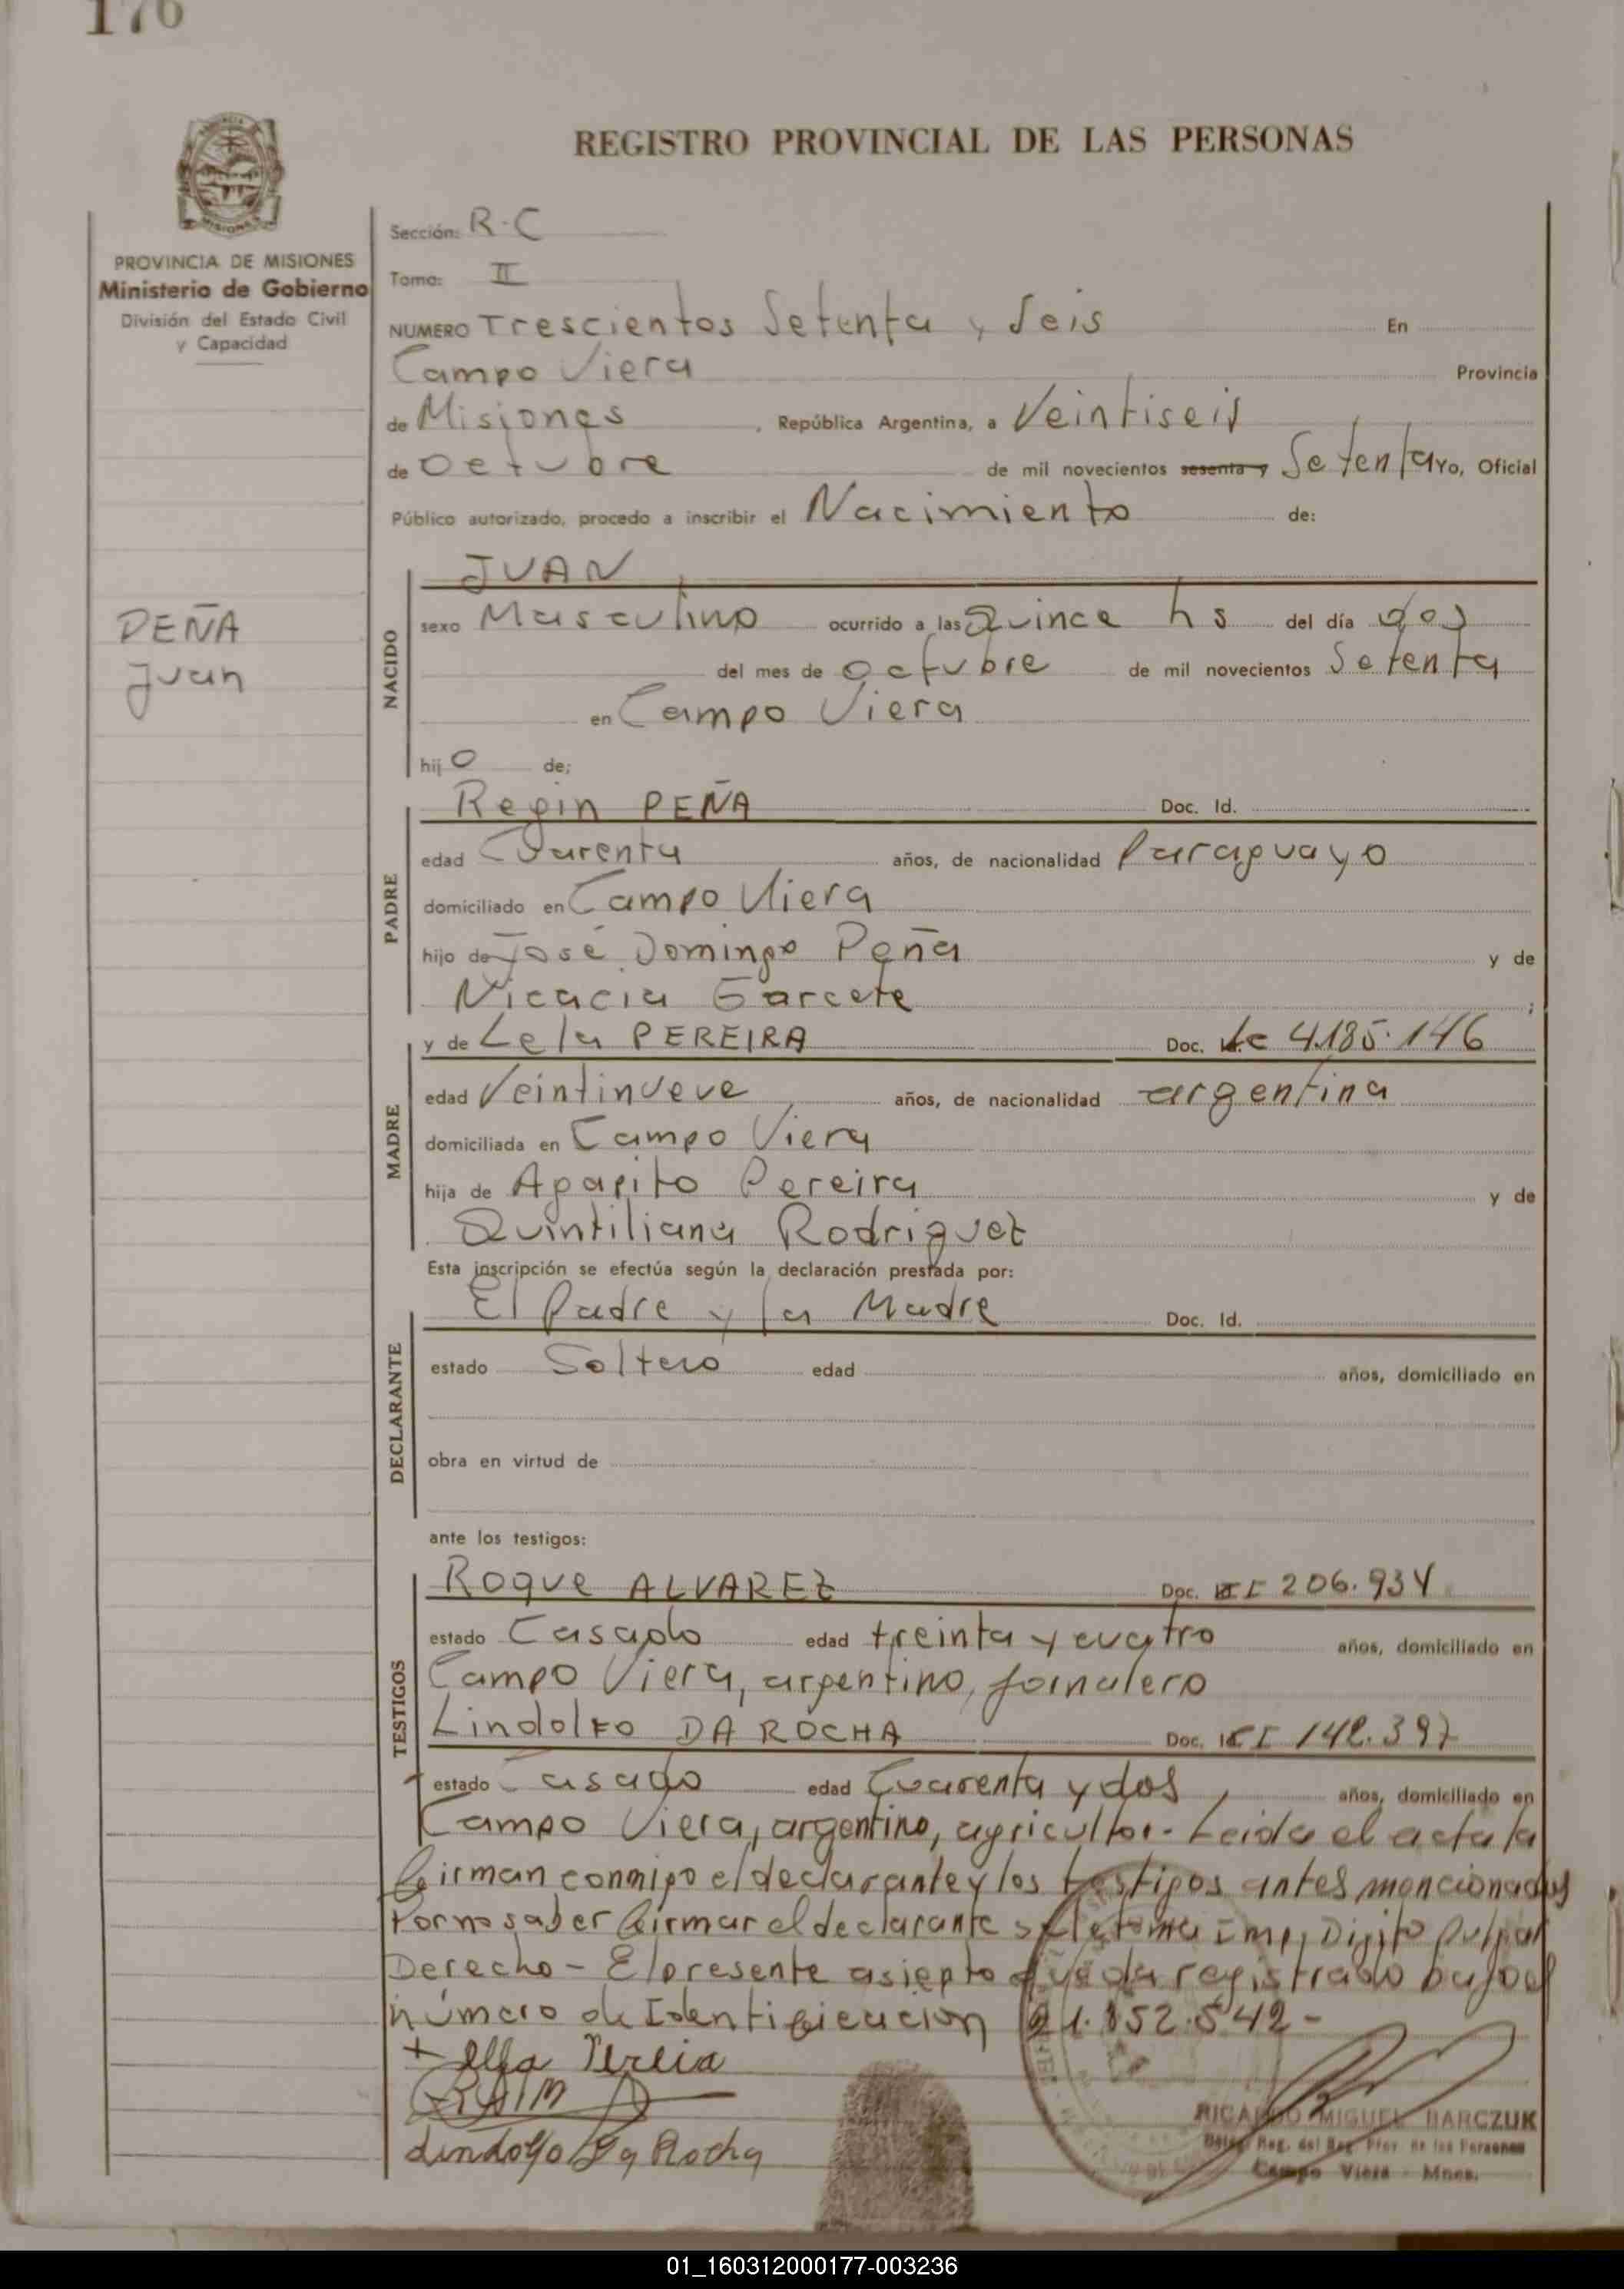 176
REGISTRO PROVINCIAL DE LAS PERSONAS
PROVINCIA DE MISIONES
Ministerio de Gobierno
División del Estado Civil
y Capacidad
PEÑA
Juan
Sección: R.C
Tomo: II
NUMERO Trescientos Setenta y Seis En
Campo Viera Provincia
de Misiones, República Argentina, a Veintiseis
de Octubre de mil novecientos sesenta y Setenta Yo, Oficial
Público autorizado, procedo a inscribir el Nacimiento de:
NACIDO
JUAN
sexo Masculino ocurrido a las Quince hs del día dos
del mes de Octubre de mil novecientos Setenta
en Campo Viera
hijo de;
PADRE
Regin PEÑA Doc. Id.
edad Cuarenta años, de nacionalidad Paraguayo
domiciliado en Campo Viera
hijo de José Domingo Peña y de
Nicacia Garcete ;
MADRE
y de Lela PEREIRA Doc. Lc 4.185.146
edad Veintinueve años, de nacionalidad argentina
domiciliada en Campo Viera
hija de Agapito Pereira y de
Quintiliana Rodriguez
Esta inscripción se efectúa según la declaración prestada por:
DECLARANTE
El Padre y la Madre Doc. Id.
estado Soltero edad años, domiciliado en
obra en virtud de
ante los testigos:
TESTIGOS
Roque ALVAREZ Doc. CI 206.934
estado Casado edad treinta y cuatro años, domiciliado en
Campo Viera, argentino, jornalero
Lindolfo DA ROCHA Doc. CI 142.397
estado Casado edad Cuarenta y dos años, domiciliado en
Campo Viera, argentino, agricultor - Leida el acta la
firman conmigo el declarante y los testigos antes mencionados
Por no saber firmar el declarante se le toma Imp, Digito Pulpar
Derecho - El presente asiento queda registrado bajo el
número de Identificacion 21.852.542-
+ Pereia
Lindolfo Da Rocha
RICARDO MIGUEL BARCZUK
Deleg. Reg. del Reg. Prov. de las Personas
Campo Viera - Mnes.
01_160312000177-003236